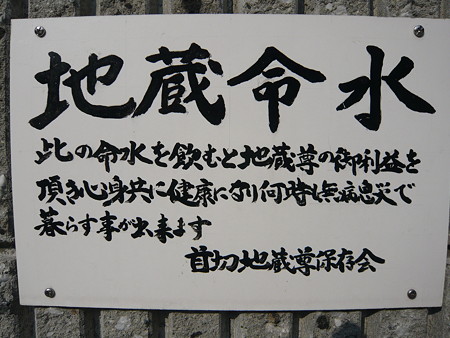 地蔵命水
此の命水を飲むと地蔵尊の御利益を
頂き心身共に健康になり何時も無病息災で
暮らす事が出来ます
首切地蔵尊保存会